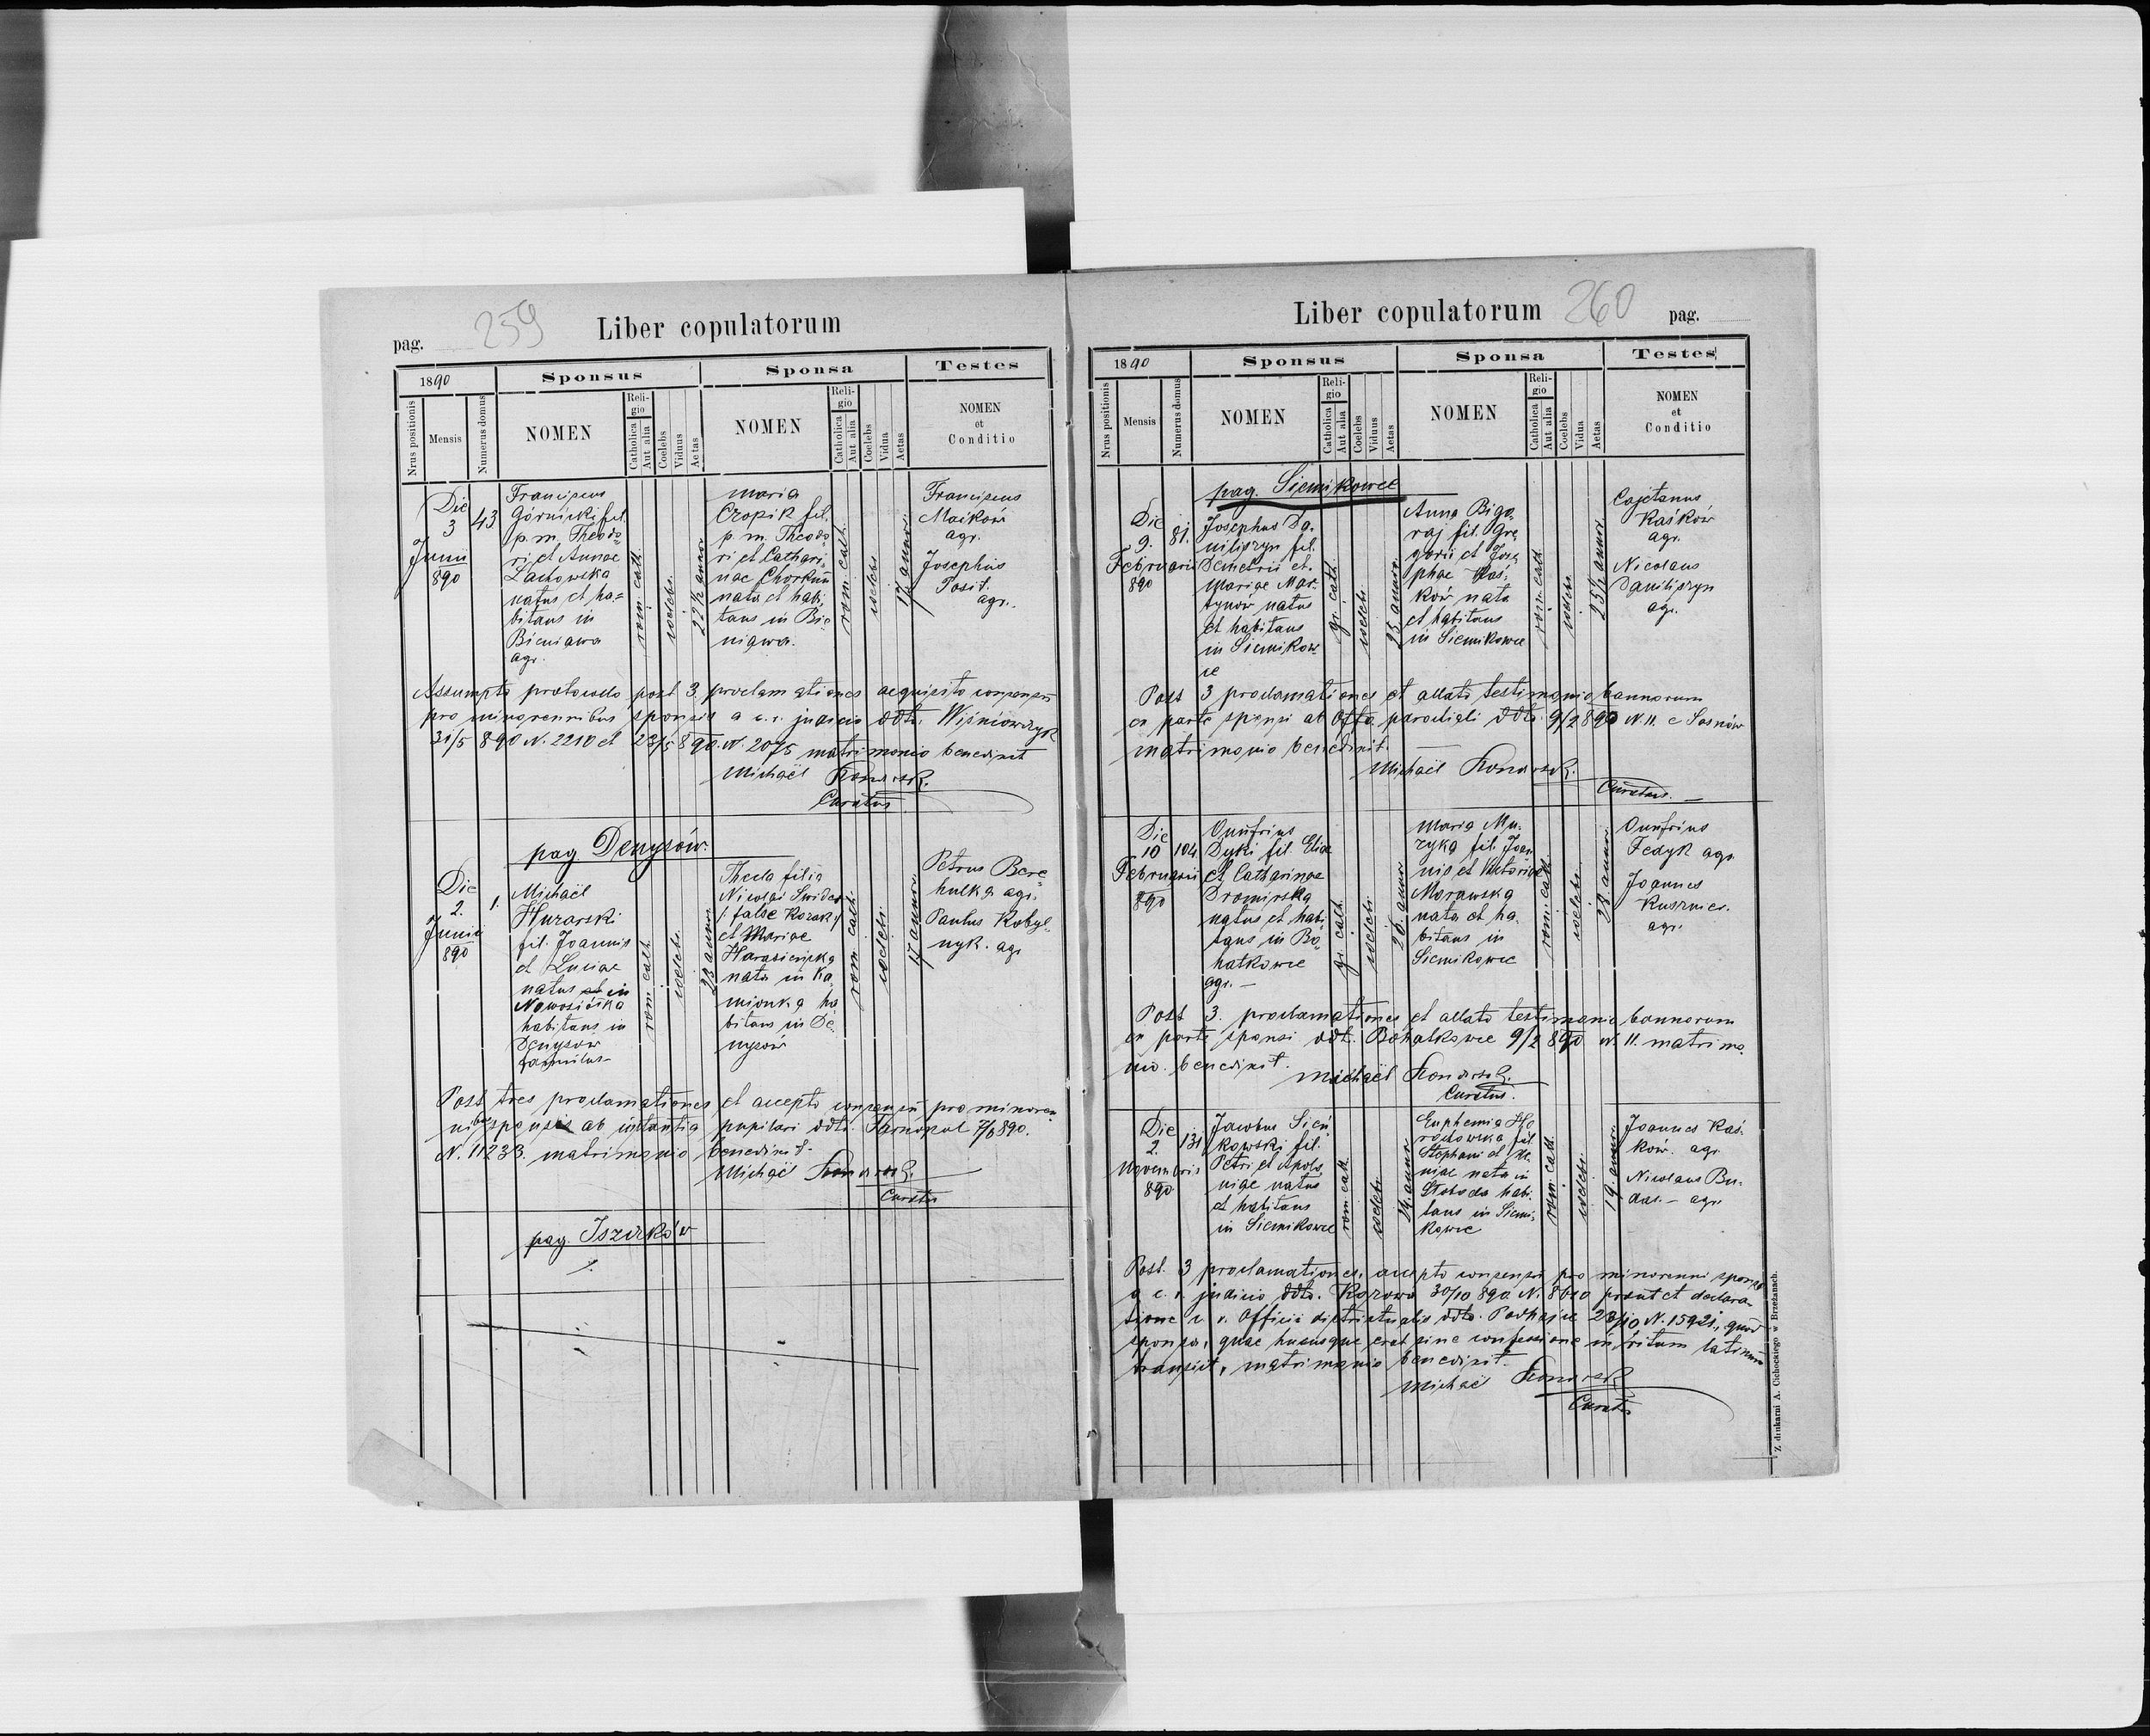 pag. 259
Liber copulatorum
1890
Sponsus
Sponsa
Testes
Nrus positionis
Mensis
Numerus domus
NOMEN
Religio
Catholica
Aut alia
Coelebs
Viduus
Aetas
NOMEN
Religio
Catholica
Aut alia
Coelebs
Vidua
Aetas
NOMEN
et
Conditio
Die
3
Junii
890
43
Franciscus
Górnicki fil.
p. m. Theodo
ri et Annae
natus et ha=
bitans in
Bieniawa
agr.
rom. cath.
coelebs.
22 1/2 annor
Maria
Czopik fil.
p. m. Theodo
ri et Cathari
nae
nata et habi
tans in Bie
niawa.
rom. cath.
coelebs
17 annor.
Franciscus
Maików
agr.
Josephus
Posit.
agr.
Assumpto protocolo post 3. proclamationes acquisito consensu
pro minorennibus sponsis a c. r. judicio ddto. Wiśniowczyk
31/5 890 N. 2210 et 23/5 890. N. 2075 matrimonio benedixit
Michaël
Curatus
pag Denysów.
Die
2.
Junii
890
1.
Michaël
Huzarski
fil. Joannis
et Luciae
natus in
Nowosiółka
habitans in
Denysow
famulus
rom. cath.
coelebs.
23 annor
Thecla filia
Nicolai Swider
/: false Kozak :/
et Mariae
nata in Ka
mionka ha
bitans in De
nysów
rom. cath.
coelebs.
17 annor.
Petrus Bere
hulka agr.
Paulus Kobyl
nyk. agr.
Post tres proclamationes et accepto consensu pro minoren
nibus sponsis ab instantia pupilari ddto. Tarnopol 7/6 890.
N. 11233. matrimonio benedixit.
Michaël
Curatus
pag. Iszczków
Liber copulatorum 260 pag.
1890
Sponsus
Sponsa
Testes
Nrus positionis
Mensis
Numerus domus
NOMEN
Religio
Catholica
Aut alia
Coelebs
Viduus
Aetas
NOMEN
Religio
Catholica
Aut alia
Coelebs
Vidua
Aetas
NOMEN
et
Conditio
pag. Siemikowce
Die
9.
Februarii
890
81.
Josephus Da
niliszyn fil.
Demetrii et
Mariae Mar
tynów natus
et habitans
in Siemikow
ce
gr. cath.
coelebs.
25 annor.
Anna Bigo
raj fil. Gre
gorii et Jose
phae Kaś
ków nata
et habitans
in Siemikowce
rom. cath.
coelebs.
25 1/2 annor
Cajetanus
Kaśków
agr.
Nicolaus
Daniliszyn
agr.
Post 3 proclamationes et allato testimonio bannorum
ex parte sponsi ab Offo. parochiali ddto. 9/2 890 N. 11. e Sosnów
matrimonio benedixit.
Michaël
Curatus.
Die
10
Februarii
890
104
Onufrius
Dyki fil. Eliae
et Catharinae
Dromirska
natus et habi
tans in Bo
hatkowce
agr.
gr. cath.
coelebs.
26. annor
Maria Mu
zyka fil. Joan
nis et Victoriae
Morawska
nata et ha
bitans in
Siemikowce
rom. cath.
coelebs.
28. annor.
Onufrius
Fedyk agr.
Joannes
Kusznier.
agr.
Post 3. proclamationes et allato testimonio bannorum
ex parte sponsi ddt. Bohatkowce 9/2 890 N. 11. matrimo
nio. benedixit.
Michaël
Curatus.
Die
2.
Novembris
890
131
Jacobus Sień
kowski fil.
Petri et Apolo
niae natus
et habitans
in Siemikowce
rom. cath.
coelebs.
24. annor
Euphemia
fil.
Stephani et
nata in
Słoboda habi
tans in Siemi
kowce
rom. cath.
coelebs.
19. annor.
Joannes Kaś
ków. agr.
Nicolaus
agr.
Post. 3 proclamationes, accepto consensu pro minorenni sponsa
a c. r. judicio ddto. Kozowa 30/10 890 N. 8610 prout et declara
tione c. r. Officii districtualis ddto. Podhajce 28/10 N. 15921, quod
sponsa, quae hucusque erat sine confessione in ritum latinum
transiit, matrimonio benedixit.
Michaël
Curatus
Z drukarni A. Cichockiego w Brzeżanach.